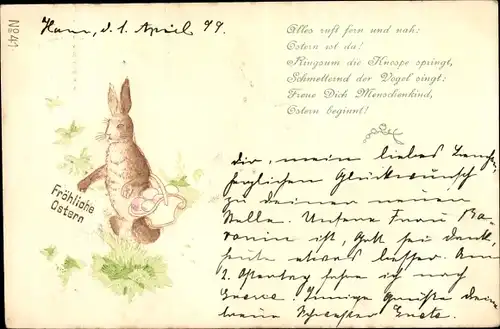 No 41
Hann, d. 1. April 99.
Alles ruft fern und nah:
Ostern ist da!
Ringsum die Knospe springt,
Schmetternd der Vogel singt:
Freue Dich Menschenkind,
Ostern beginnt!
Fröhliche
Ostern
Dir, mein liebes
herzlichen Glückwunsch
zu deiner neuen
Stelle. Unsere Frau Ba-
ronin ist, Gott sei dank
heute etwas besser. Am
2. Ostertag fahre ich nach
Innige Grüße deine
Schwester Grete.